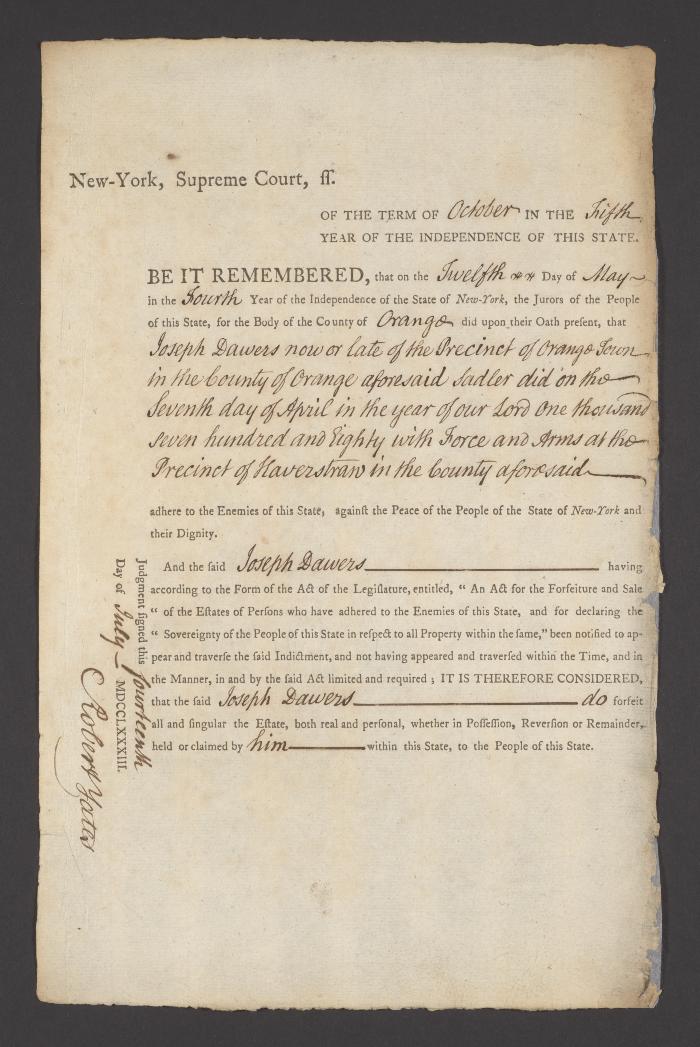 New-York, Supreme Court, ſſ.
OF THE TERM OF October IN THE Fifth
YEAR OF THE INDEPENDENCE OF THIS STATE.
BE IT REMEMBERED, that on the Twelfth Day of May
in the Fourth Year of the Independence of the State of New-York, the Jurors of the People
of this State, for the Body of the County of Orange did upon their Oath preſent, that
Joseph Dawers now or late of the Precinct of Orange Town
in the County of Orange aforesaid Sadler did on the
Seventh day of April in the year of our Lord One thousand
seven hundred and Eighty with Force and Arms at the
Precinct of Haverstraw in the County aforesaid
adhere to the Enemies of this State, againſt the Peace of the People of the State of New-York and
their Dignity.
And the ſaid Joseph Dawers having
according to the Form of the Act of the Legiſlature, entitled, “ An Act for the Forfeiture and Sale
“ of the Eſtates of Perſons who have adhered to the Enemies of this State, and for declaring the
“ Sovereignty of the People of this State in reſpect to all Property within the ſame,” been notified to ap-
pear and traverſe the ſaid Indictment, and not having appeared and traverſed within the Time, and in
the Manner, in and by the ſaid Act limited and required ; IT IS THEREFORE CONSIDERED,
that the ſaid Joseph Dawers do forfeit
all and ſingular the Eſtate, both real and perſonal, whether in Poſſeſſion, Reverſion or Remainder,
held or claimed by him within this State, to the People of this State.
Judgment ſigned this fourteenth
Day of July MDCCLXXXIII.
Robert Yates